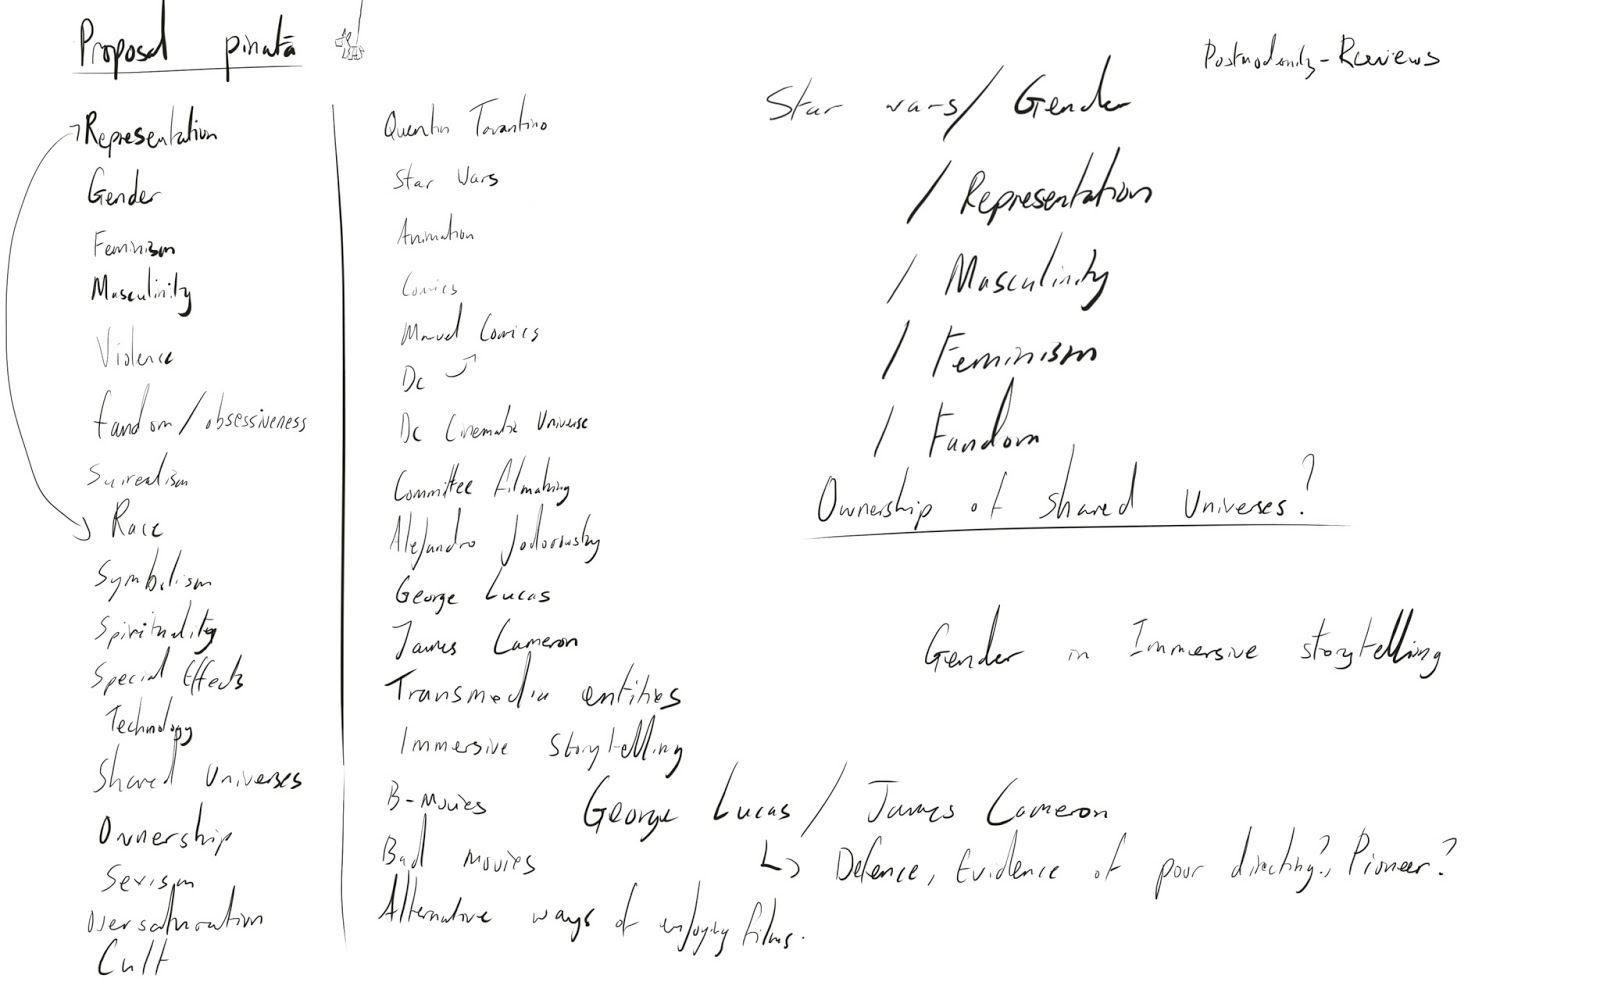 Proposal pinata
Postmodernity - Reviews
Representation
Gender
Feminism
Masculinity
Violence
fandom / obsessiveness
Surrealism
Race
Symbolism
Spirituality
Special Effects
Technology
Shared Universes
Ownership
Sexism
Oversaturation
Cult
Quentin Tarantino
Star Wars
Animation
Comics
Marvel Comics
Dc
Dc Cinematic Universe
Committee filmaking
Alejandro Jodorowsky
George Lucas
James Cameron
Transmedia entities
Immersive Storytelling
B-Movies
Bad movies
Alternative ways of enjoying films.
Star wars / Gender
/ Representation
/ Masculinity
/ Feminism
/ Fandom
Ownership of shared Universes?
Gender in Immersive storytelling
George Lucas / James Cameron
↳ Defence, Evidence of poor directing?, Pioneer?